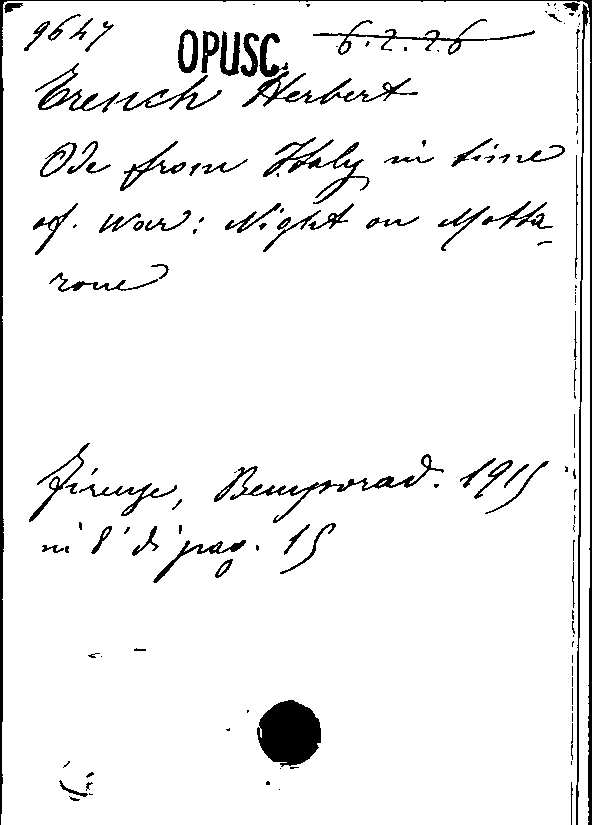 9647 OPUSC. 6.2.26
Trench Herbert
Ode from Italy in time
of War: Night on Motta-
rone
Firenze, Bemporad. 1915
in 8° di pag. 15